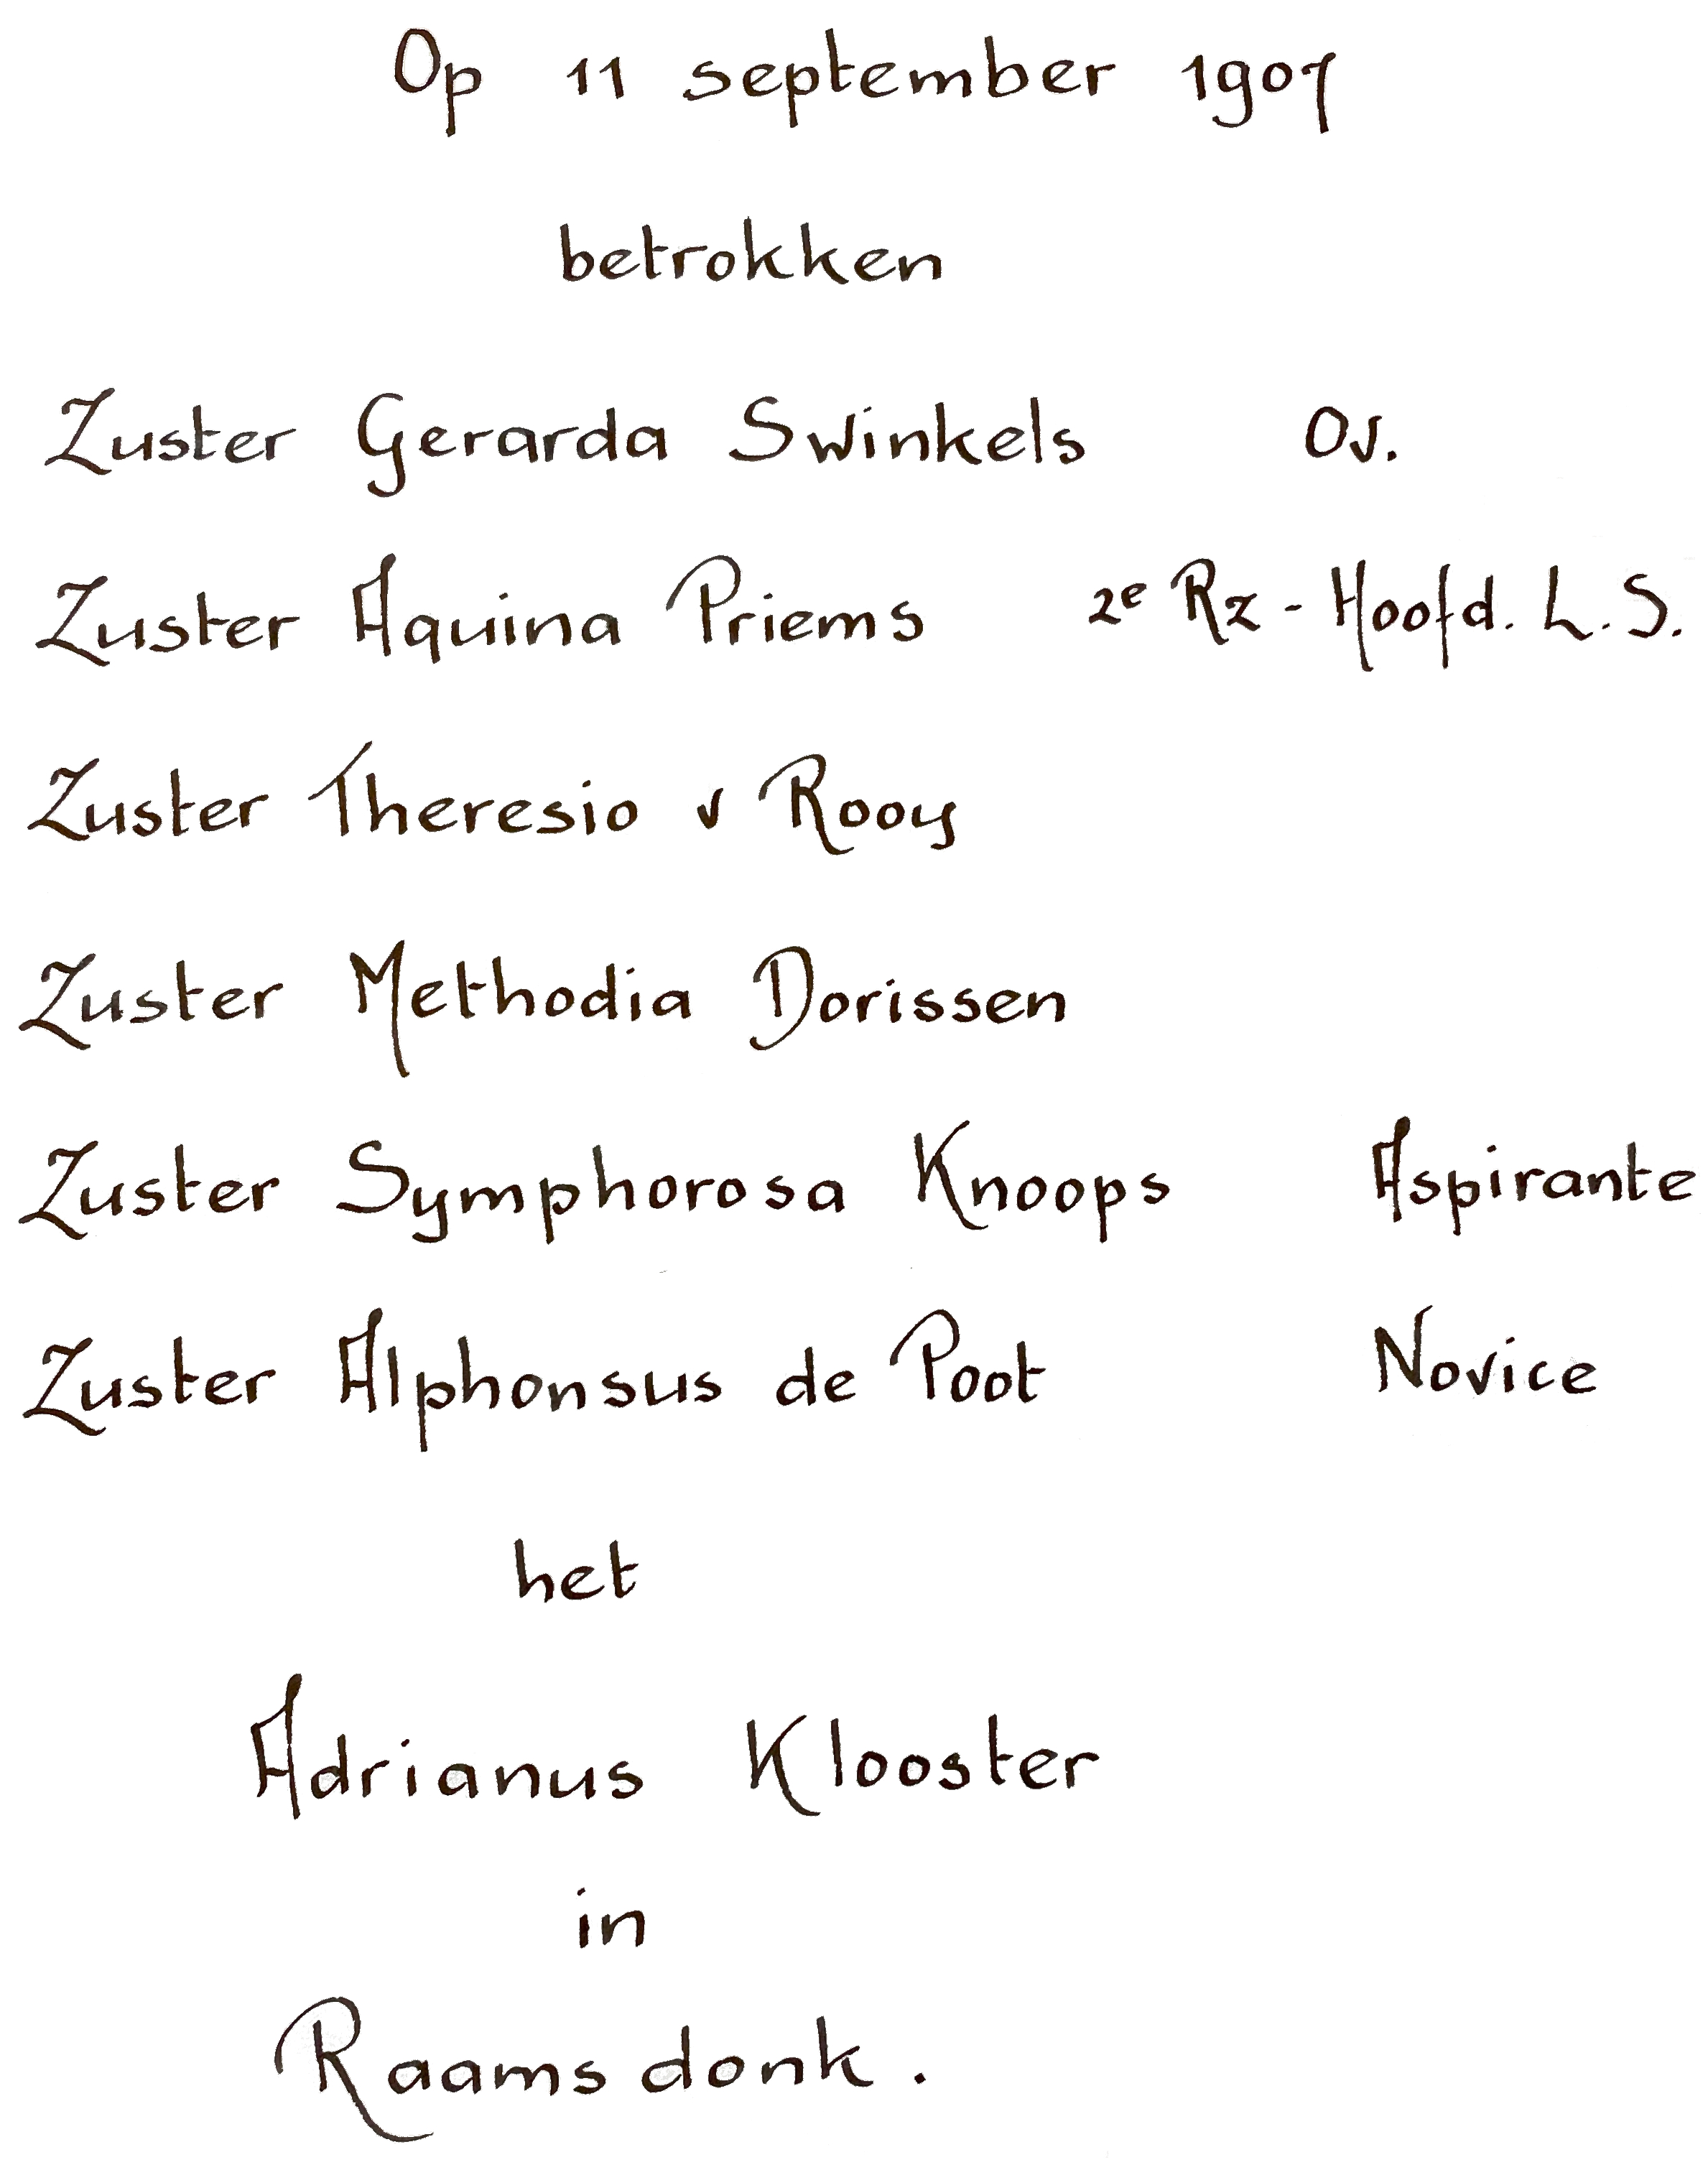 Op 11 september 1907
betrokken
Zuster Gerarda Swinkels Ov.
Zuster Aquina Priems 2e Rz - Hoofd. L. S.
Zuster Theresio v Rooy
Zuster Methodia Dorissen
Zuster Symphorosa Knoops Aspirante
Zuster Alphonsus de Poot Novice
het
Adrianus Klooster
in
Raamsdonk.